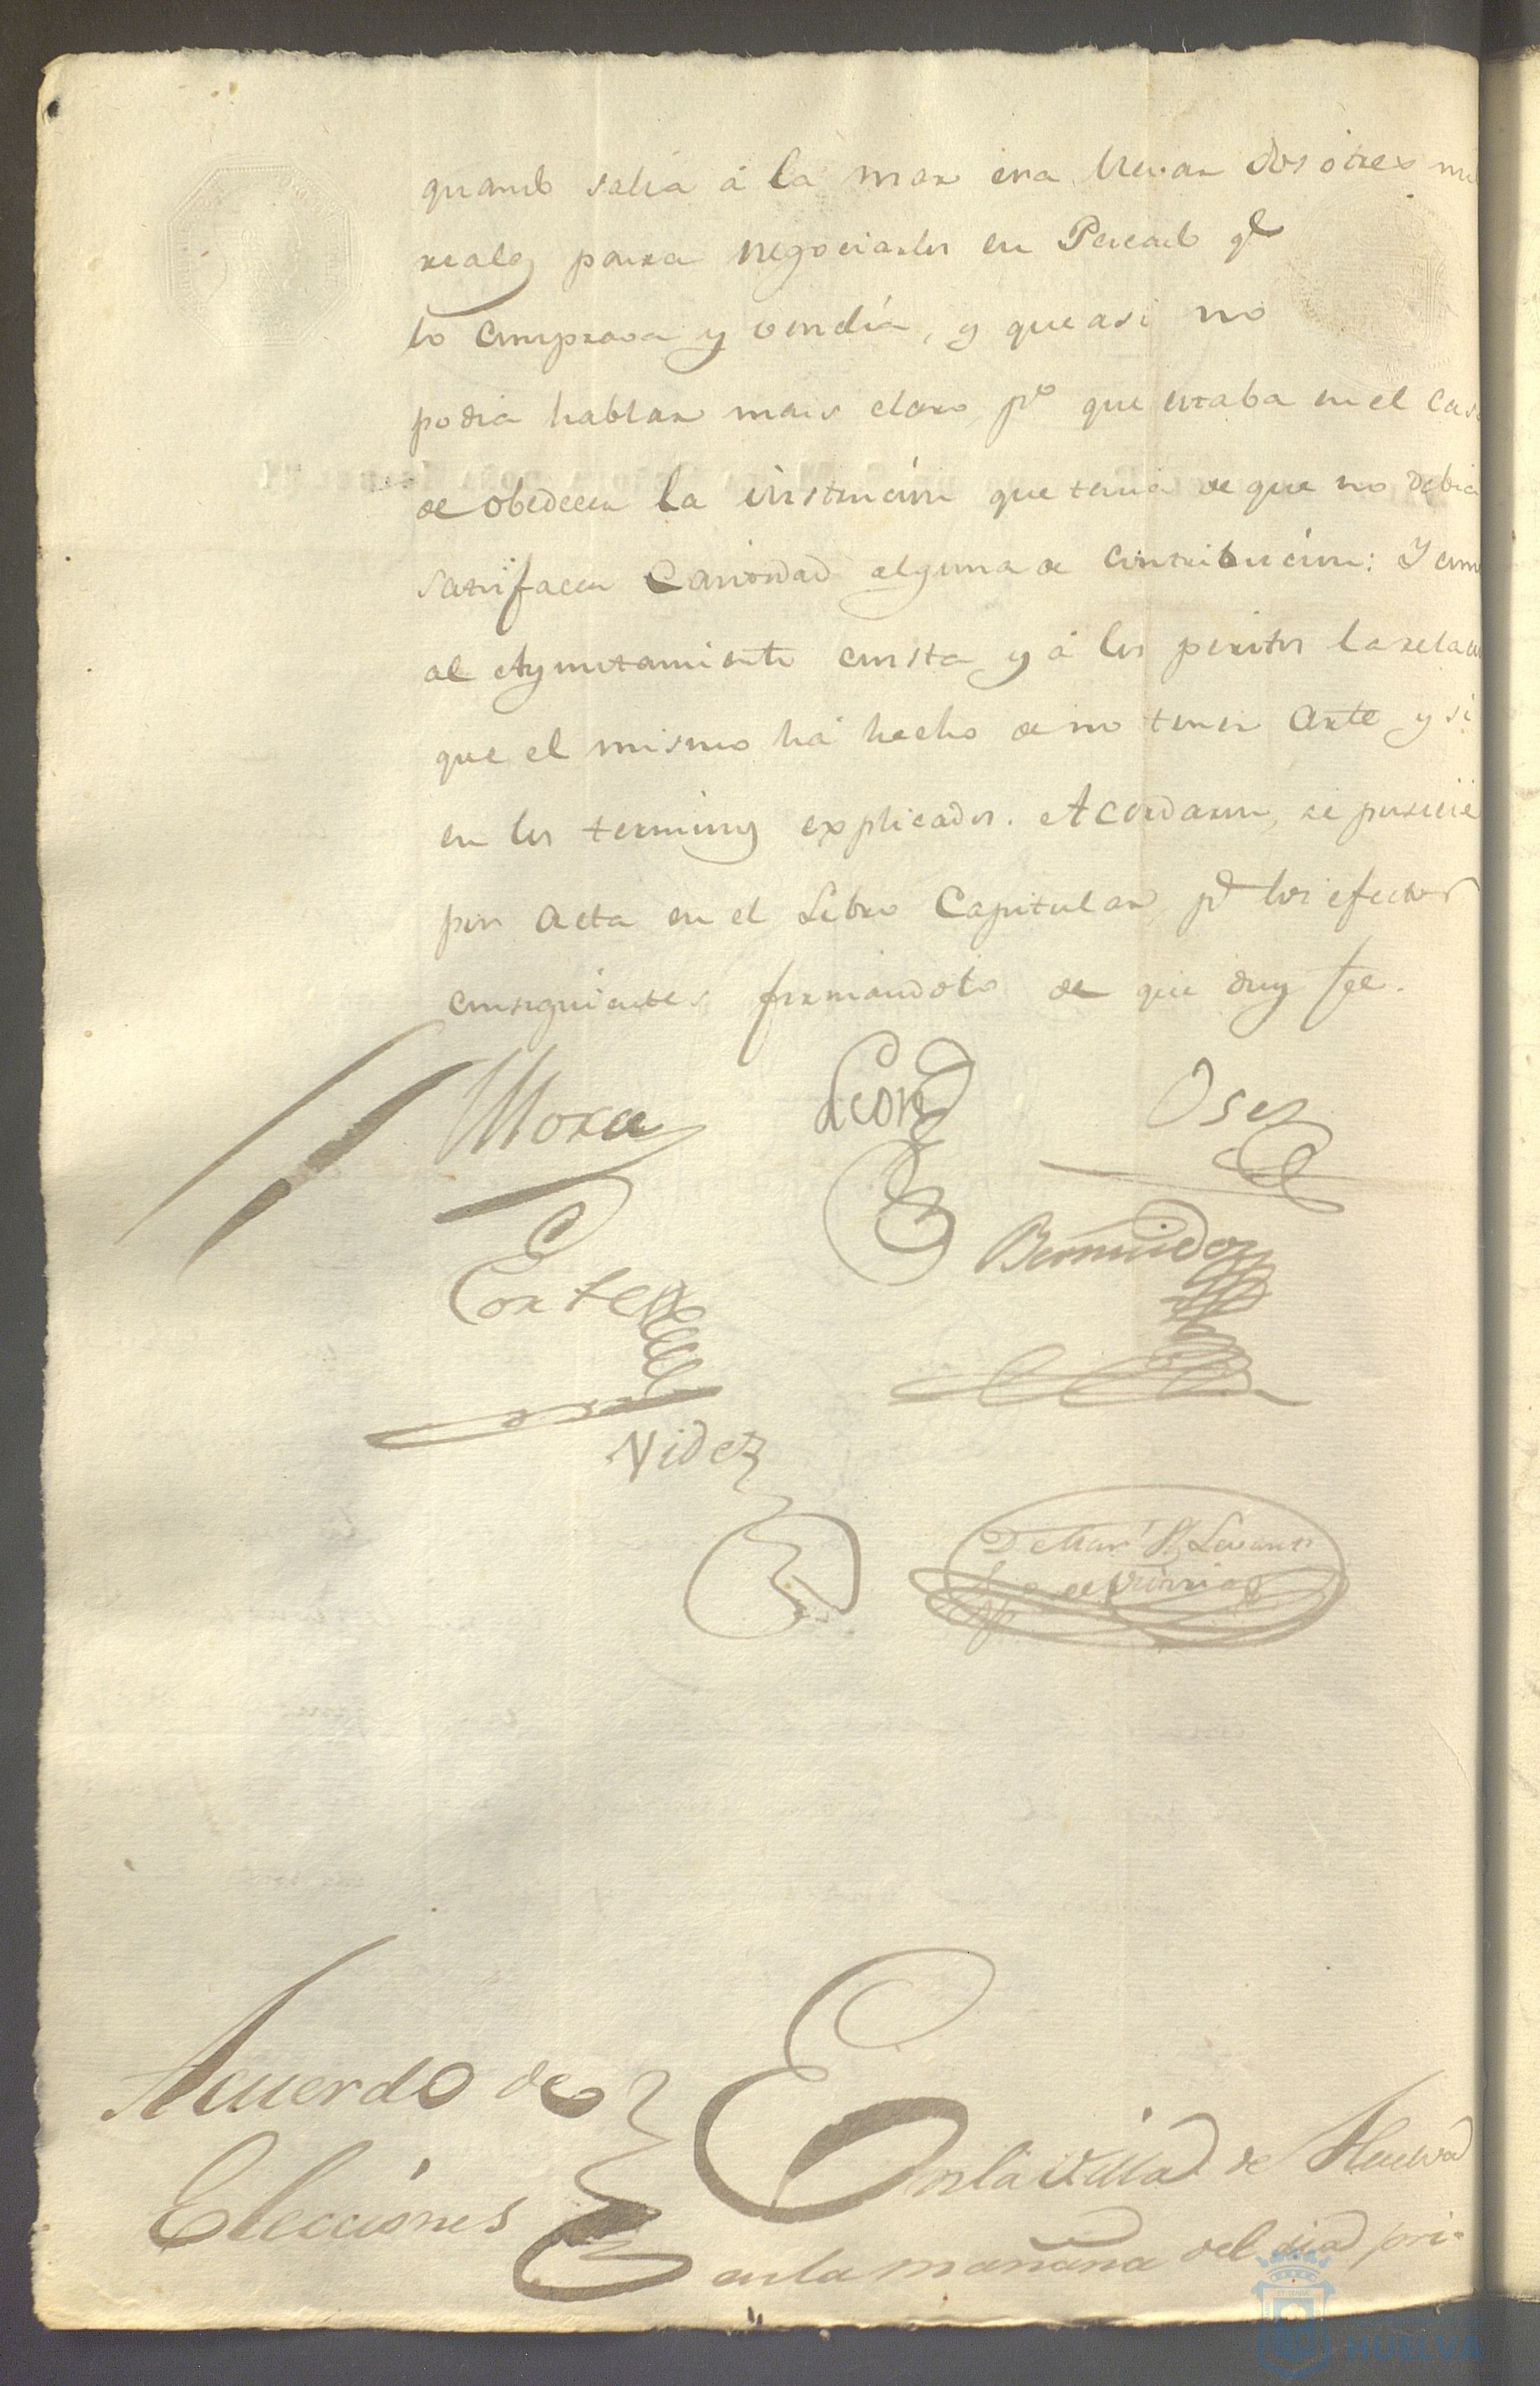 quando salia á la mar era llevar dos ó tres mi
reales para negociarlos en Pescado qe
lo compraba y vendía, y que asi no
podia hablar mais claro, po que estaba en el caso
de obedecer la instrución que tenia de que no debia
satisfacer Cantidad alguna de Contribución: Y como
al Ayuntamiento consta y á los peritos la relac
que el mismo há hecho de no tener Arte y si
en los terminos explicados. Acordaron, se pusiese
por Acta en el Libro Capitular pa los efectos
consiguientes firmandolo de que doy fee.
Mora Leon Osez
Cortes Bermudez
Videz
Acuerdo de
Elecciónes
En la villa de Huelva
en la mañana del dia pri-
HUELVA